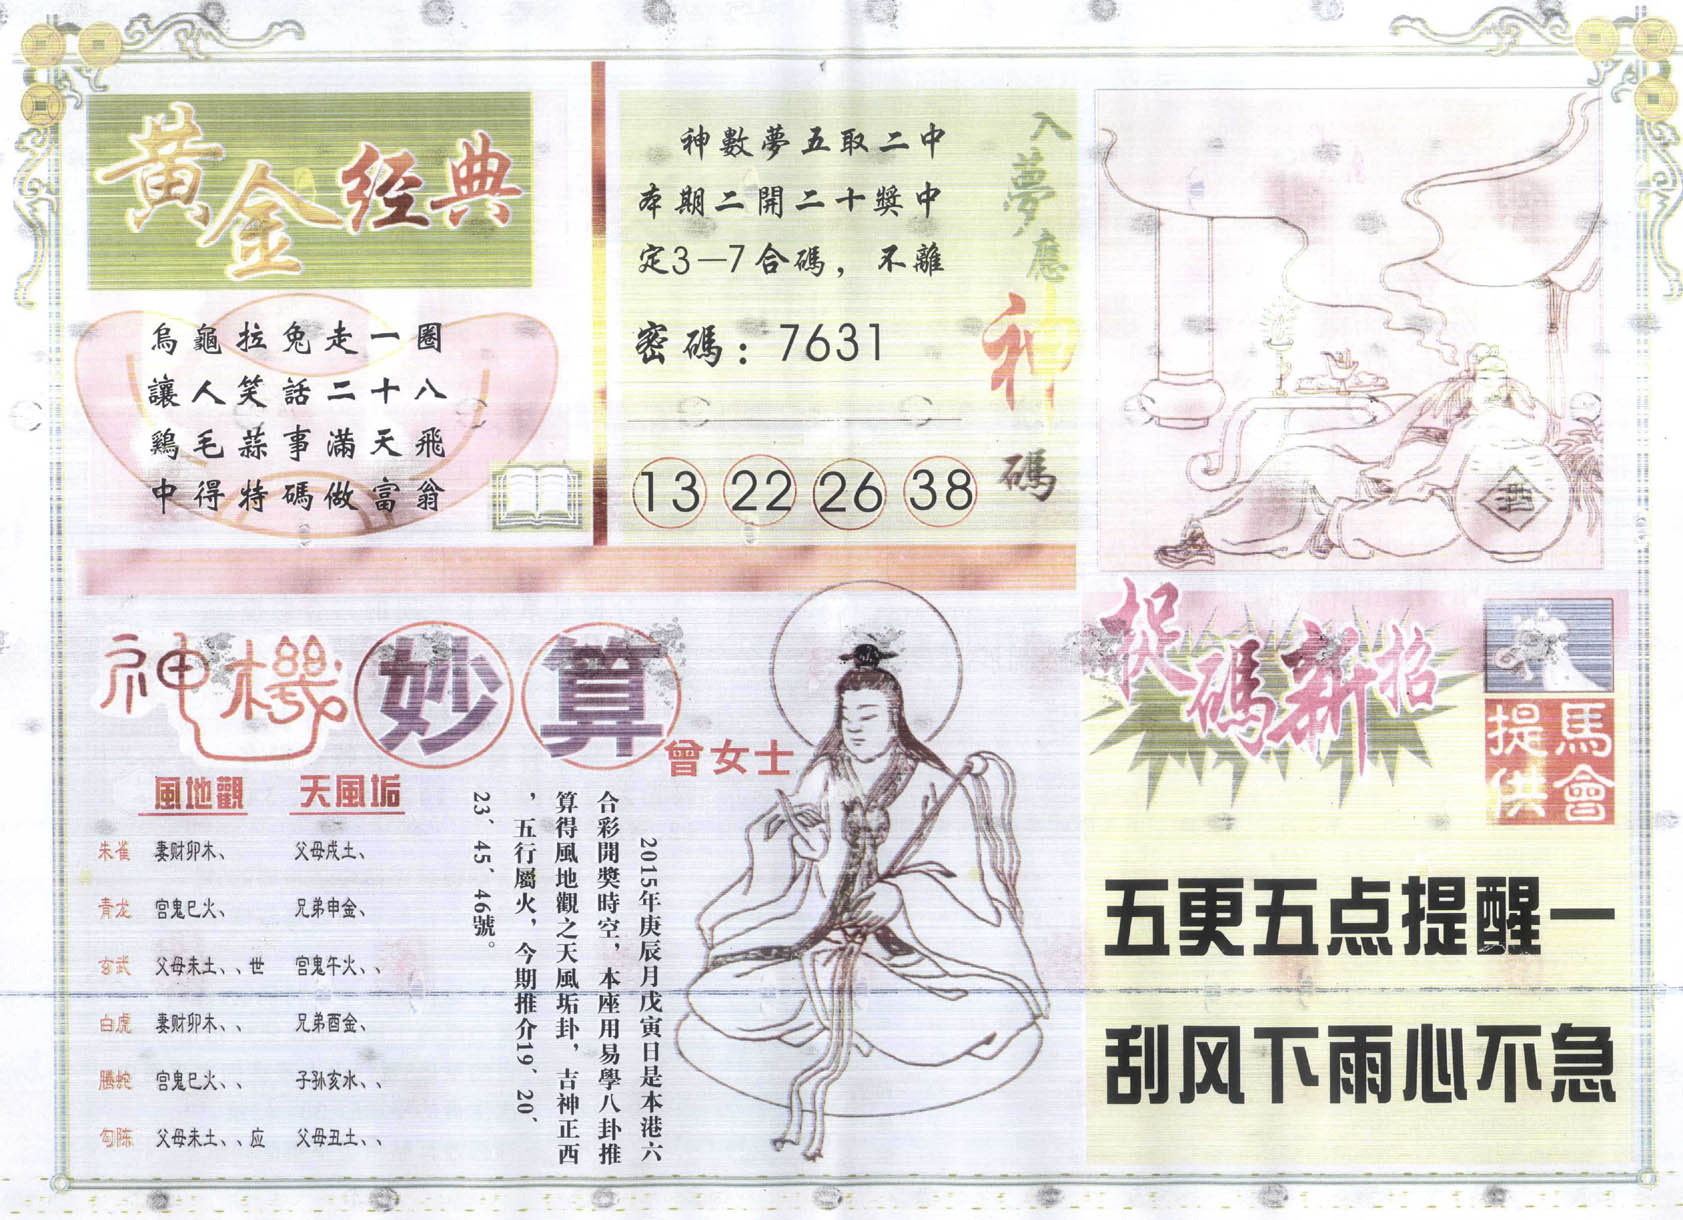 黄金经典
烏龜拉兔走一圈
讓人笑話二十八
鷄毛蒜事滿天飛
中得特碼做富翁
神數夢五取二中
本期二開二十獎中
定3—7合碼，不離
密碼：7631
13 22 26 38
入夢應神碼
酒
神機妙算
曾女士
風地觀 天風垢
朱雀 妻财卯木、 父母戌土、
青龙 宫鬼巳火、 兄弟申金、
玄武 父母未土、、世 宫鬼午火、、
白虎 妻财卯木、、 兄弟酉金、
腾蛇 宫鬼巳火、、 子孙亥水、、
勾陈 父母未土、、应 父母丑土、、
2015年庚辰月戊寅日是本港六
合彩開獎時空，本座用易學八卦推
算得風地觀之天風垢卦，吉神正西
，五行屬火，今期推介19、20、
23、45、46號。
捉碼新招
馬會提供
五更五点提醒一
刮风下雨心不急